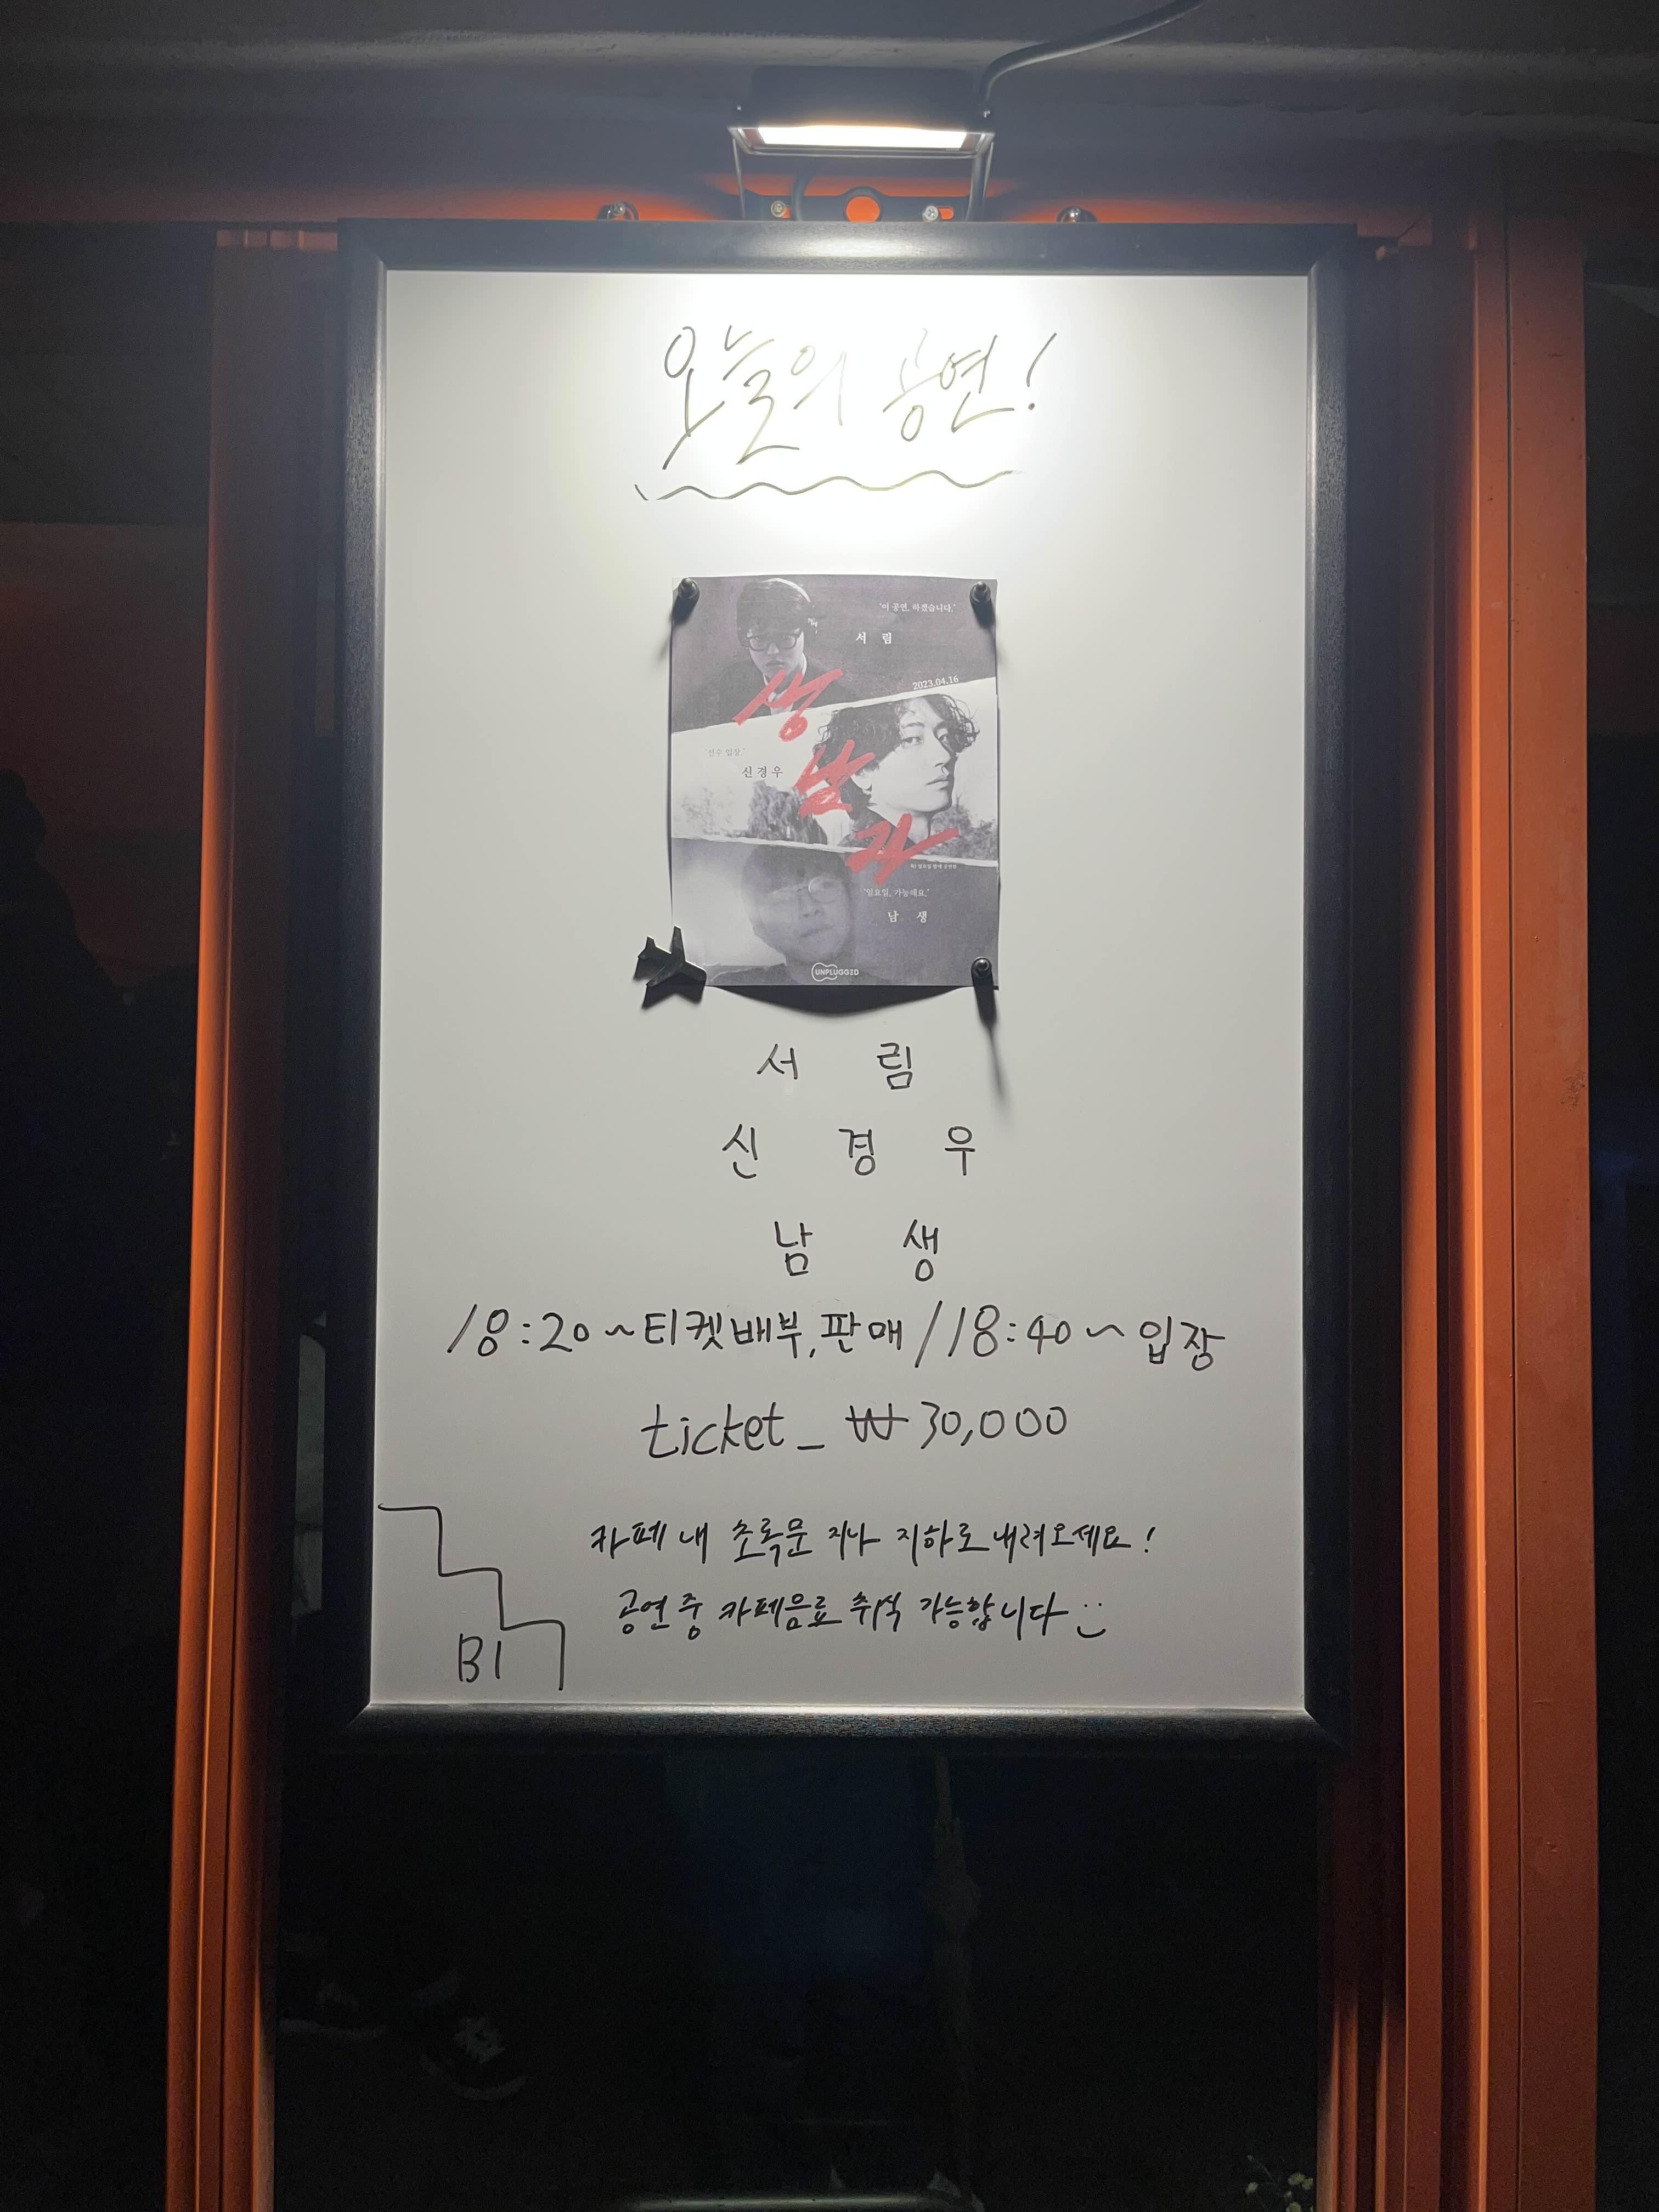 오늘의 공연!
'이 공연, 하겠습니다.'
서 림
2023.04.16
상
'선수 입장.'
신경우
남
자
'일요일, 가능해요.'
남 생
UNPLUGGED
서 림
신 경 우
남 생
18:20~티켓배부,판매/18:40~입장
ticket_ ₩30,000
카페 내 초록문 지나 지하로 내려오세요!
공연 중 카페음료 취식 가능합니다 :)
B1